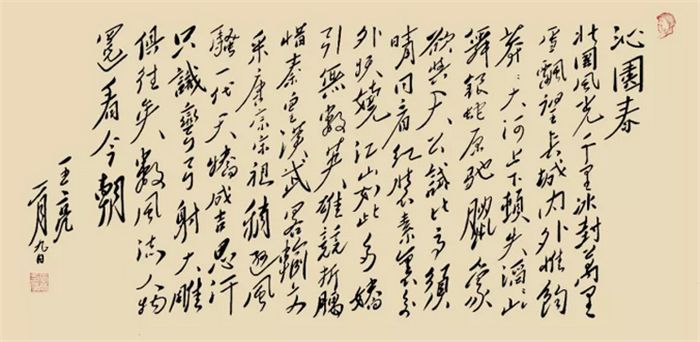 沁園春
北國風光千里冰封萬里
雪飄望長城内外惟餘
莽々大河上下頓失滔々山
舞銀蛇原馳臘象
欲與天公試比高須
晴日看紅裝素裹分
外妖嬈江山如此多嬌
引無數英雄競折腰
惜秦皇漢武略輸文
采唐宗宋祖稍遜風
騷一代天驕成吉思汗
只識彎弓射大雕
俱往矣數風流人物
還看今朝
王亮
月九日